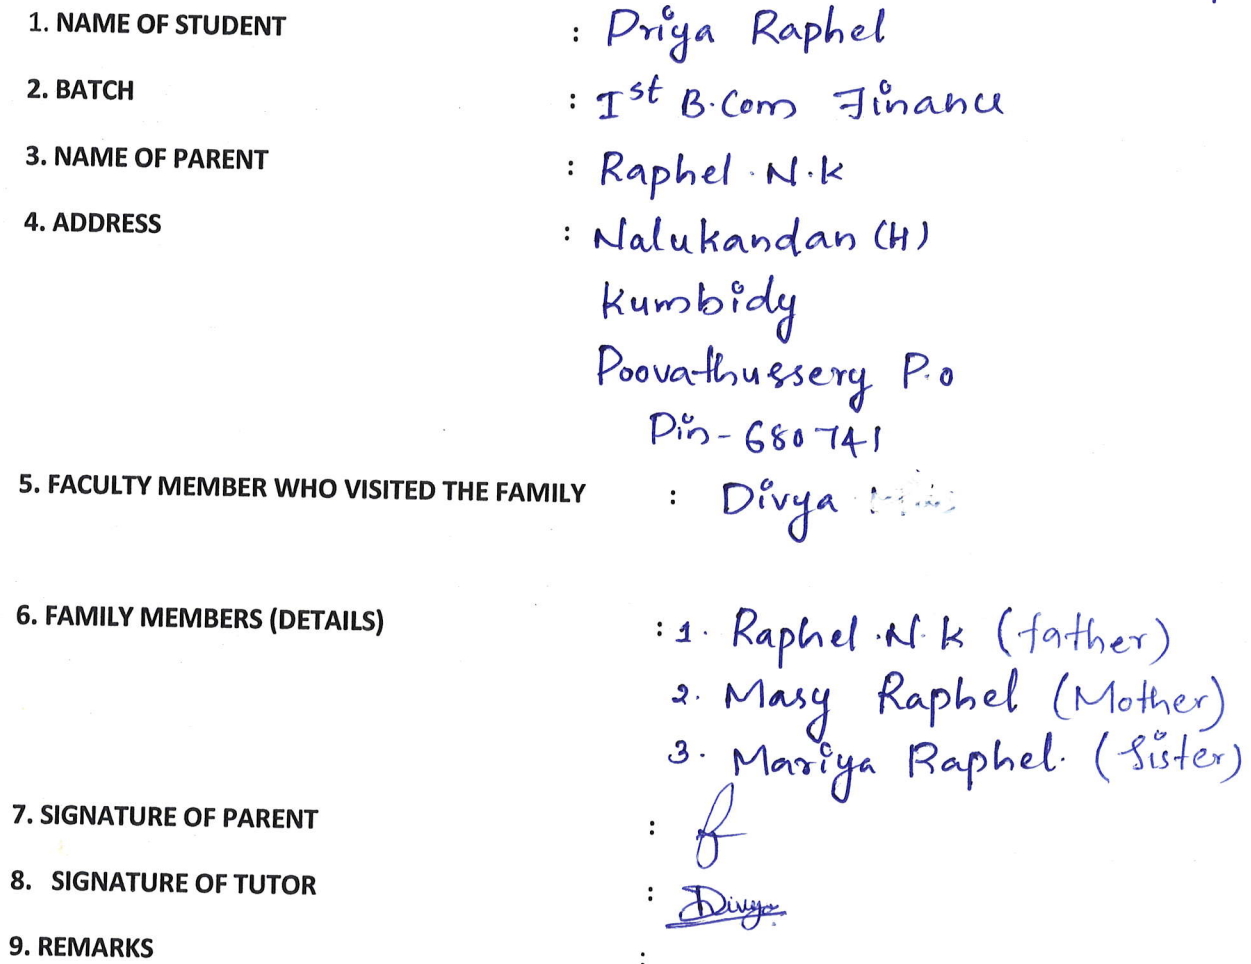 1. NAME OF STUDENT : Priya Raphel
2. BATCH : Ist B.Com Finance
3. NAME OF PARENT : Raphel . N.K
4. ADDRESS : Nalukandan (H)
Kumbidy
Poovathussery P.O
Pin - 680741
5. FACULTY MEMBER WHO VISITED THE FAMILY : Divya
6. FAMILY MEMBERS (DETAILS) : 1. Raphel .N.K (father)
2. Masy Raphel (Mother)
3. Mariya Raphel. (Sister)
7. SIGNATURE OF PARENT :
8. SIGNATURE OF TUTOR : Divya
9. REMARKS :